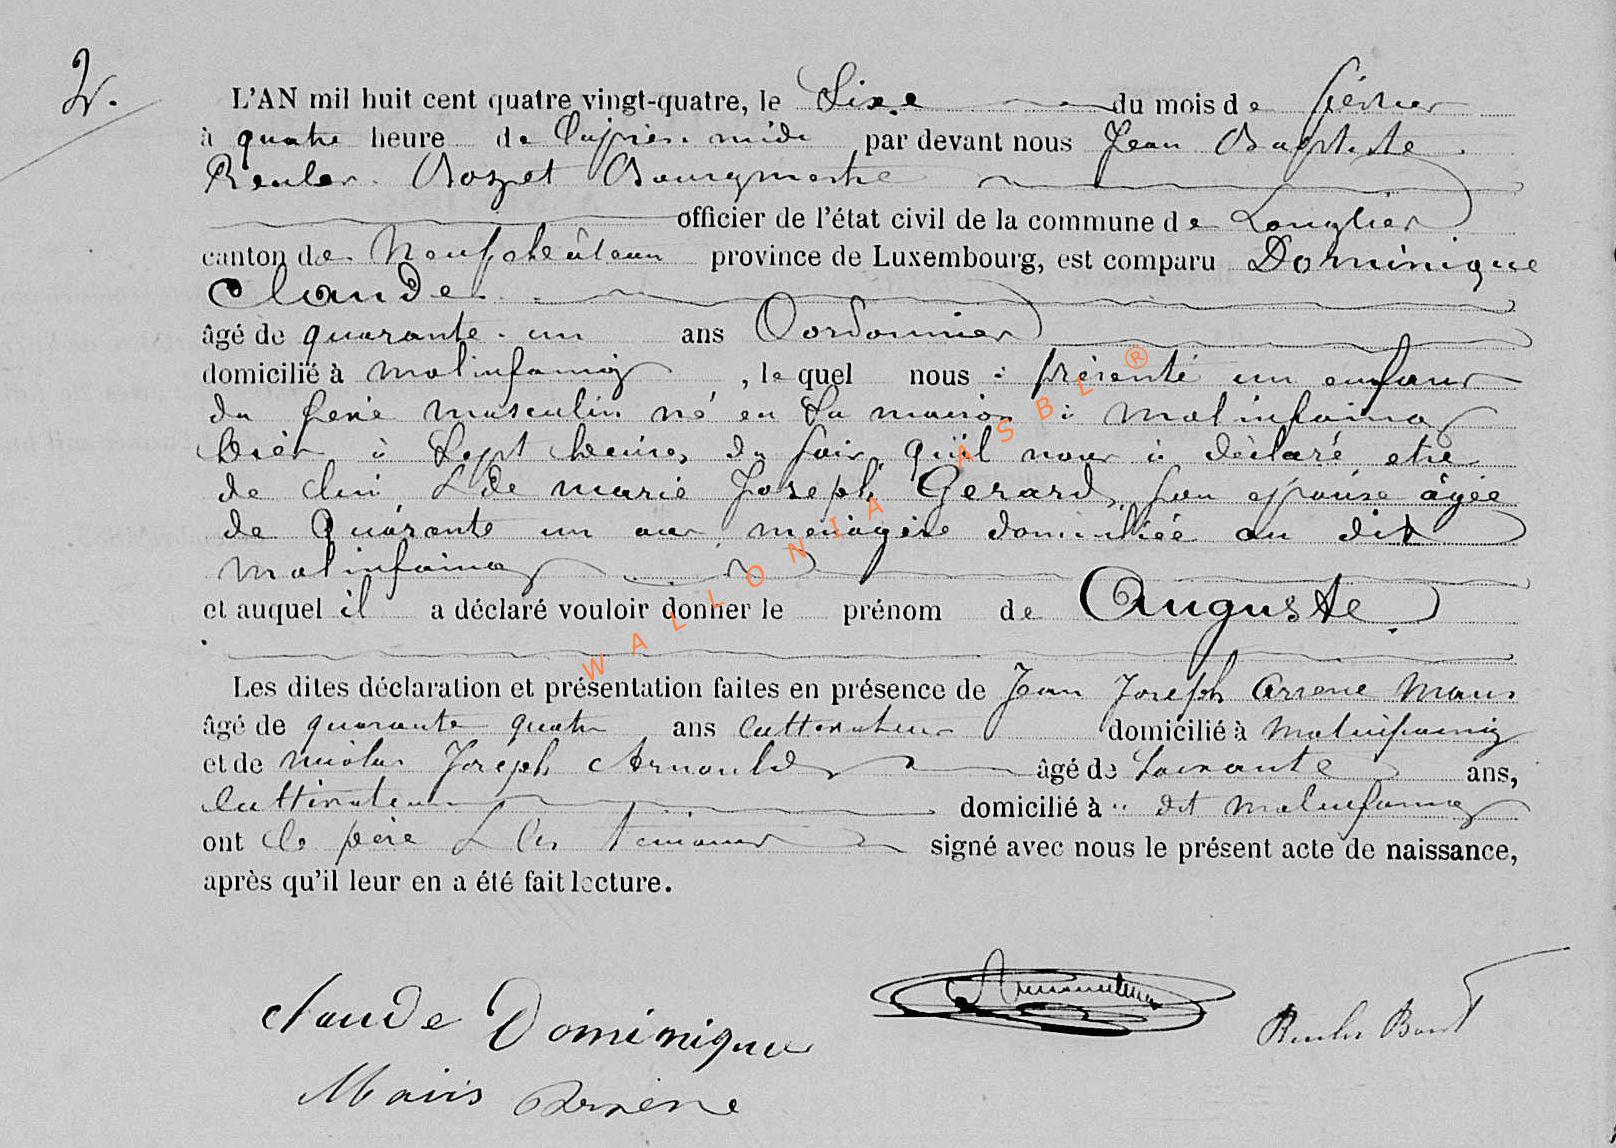 2.
L'AN mil huit cent quatre vingt-quatre, le Sixe du mois de février
à quatre heure de l'après-midi par devant nous Jean Baptiste
Reuler Bozet Bourgmestre
officier de l'état civil de la commune de Longlier
canton de Neufchâteau province de Luxembourg, est comparu Dominique
Claude
âgé de quarante-un ans Cordonnier
domicilié à molinfaing, le quel nous à présenté un enfant
du sexe masculin né en sa maison à molinfaing
hier à Sept heures du soir, qu'il nous à déclaré etre
de lui & de marie Joseph Gerard, son épouse âgée
de Quarante un ans, menagère domiciliée au dit
molinfaing
et auquel il a déclaré vouloir donner le prénom de Auguste
Les dites déclaration et présentation faites en présence de Jean Joseph Arsene Maus
âgé de quarante quatre ans cultivateur domicilié à Molinfaing
et de nicolas Joseph Arnould âgé de Soixante ans,
Cultivateur domicilié à dit molinfaing
ont le père & les témoins signé avec nous le présent acte de naissance,
après qu'il leur en a été fait lecture.
Claude Dominique
Maus Arsène
WALLONIA ASBL ®